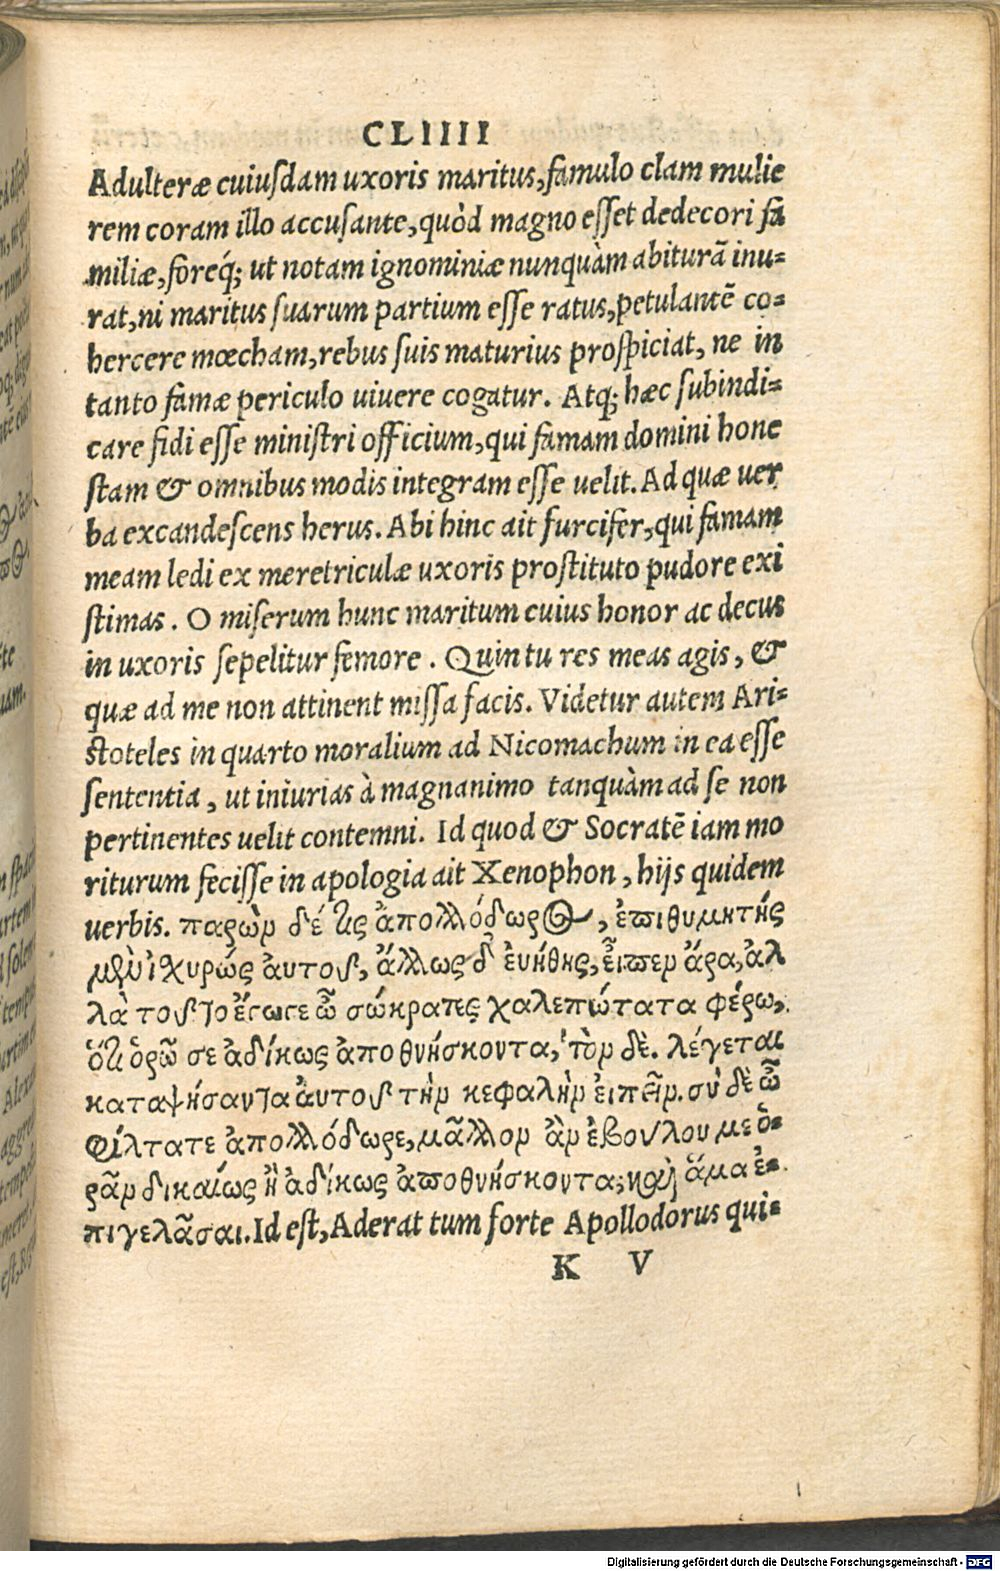 CLIIII
Adulteræ cuiusdam uxoris maritus, famulo clam mulie
rem coram illo accusante, quòd magno esset dedecori fa
miliæ, foreq́; ut notam ignominiæ nunquàm abiturā inu-
rat, ni maritus suarum partium esse ratus, petulantē co-
hercere mœcham, rebus suis maturius prospiciat, ne in
tanto famæ periculo uiuere cogatur. Atq; hæc subindi-
care fidi esse ministri officium, qui famam domini hone
stam & omnibus modis integram esse uelit. Ad quæ uer
ba excandescens herus. Abi hinc ait furcifer, qui famam
meam ledi ex meretriculæ uxoris prostituto pudore exi
stimas. O miserum hunc maritum cuius honor ac decus
in uxoris sepelitur femore. Quin tu res meas agis, &
quæ ad me non attinent missa facis. Videtur autem Ari-
stoteles in quarto moralium ad Nicomachum in ea esse
sententia, ut iniurias à magnanimo tanquàm ad se non
pertinentes uelit contemni. Id quod & Socratē iam mo
riturum fecisse in apologia ait Xenophon, hijs quidem
uerbis. παρὼν δέ τις ἀπολλόδωρος, ἐπιθυμητής
μὲν ἰχυρῶς ἀυτοῦ, ἄλλως δ' ἐυήθης, εἶπερ ἄρα, ἀλ
λὰ τοῦτο ἔγωγε ὦ σώκρατες χαλεπώτατα φέρω,
ὅτι ὁρῶ σε ἀδίκως ἀποθνήσκοντα, τὸν δὲ. λέγεται
καταψήσαντα ἀυτοῦ τὴν κεφαλὴν ἐιπεῖν. σὺ δὲ ὦ
φίλτατε ἀπολλόδωρε, μᾶλλον ἂν ἐβούλου με ὁ-
ρᾶν δικαίως ἢ ἀδίκως ἀποθνήσκοντα; καὶ ἅμα ἐ-
πιγελᾶσαι. Id est, Aderat tum forte Apollodorus qui-
K V
Digitalisierung gefördert durch die Deutsche Forschungsgemeinschaft - DFG